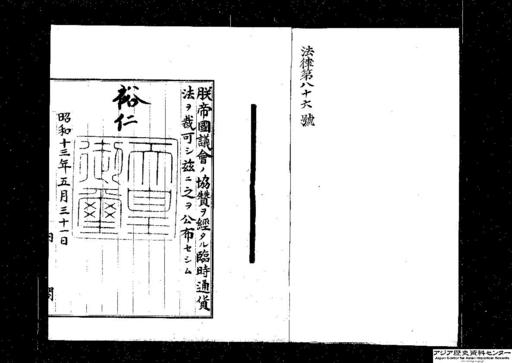 法律第八十六號
朕帝國議會ノ協贊ヲ經タル臨時通貨
法ヲ裁可シ玆ニ之ヲ公布セシム
裕仁
天皇御璽
昭和十三年五月三十一日
内 閣
アジア歴史資料センター
Japan Center for Asian Historical Records